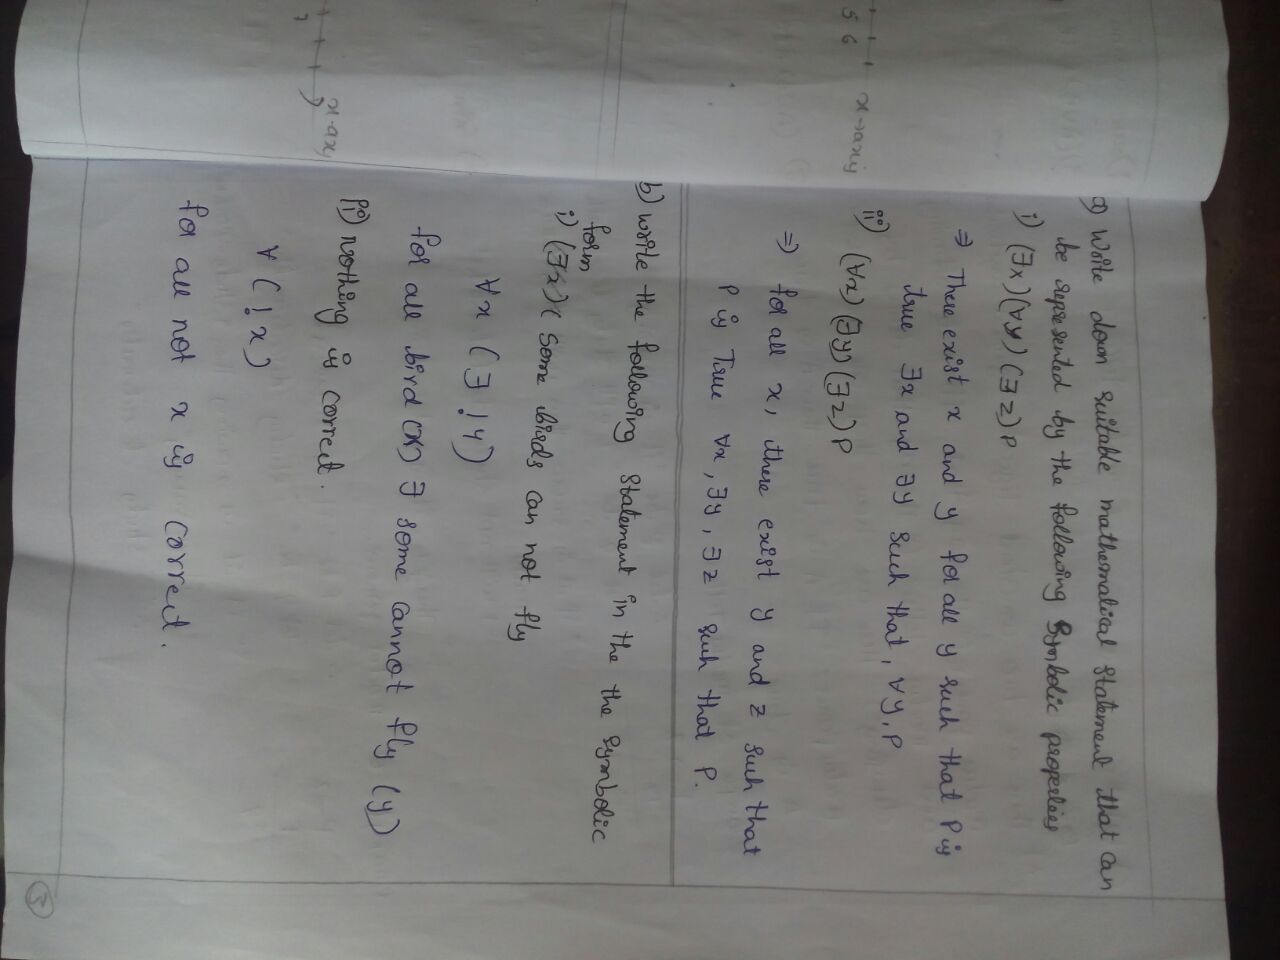 5 6
x-axiy
7
x-axy
a) write down suitable mathematical statement that can
be represented by the following symbolic properties
i) (∃x) (∀y) (∃z) P
⇒ There exist x and y for all y such that P iy
true ∃x and ∃y such that, ∀y, P
ii) (∀x) (∃y) (∃z) P
⇒) for all x, there exist y and z such that
P iy True ∀x, ∃y, ∃z such that P.
b) write the following statement in the the symbolic
form
i) (∃x) ( some birds can not fly
∀x (∃ ! y)
for all bird (x) ∃ some cannot fly (y)
ii) nothing iy correct.
∀ ( ! x)
for all not x iy correct.